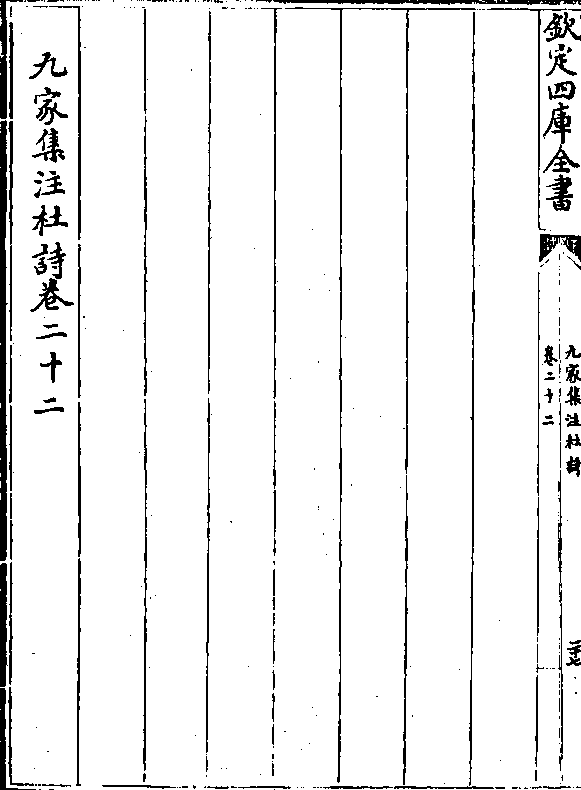 欽定四庫全書
九家集注杜詩
卷二十二
三十七
九家集注杜詩卷二十二